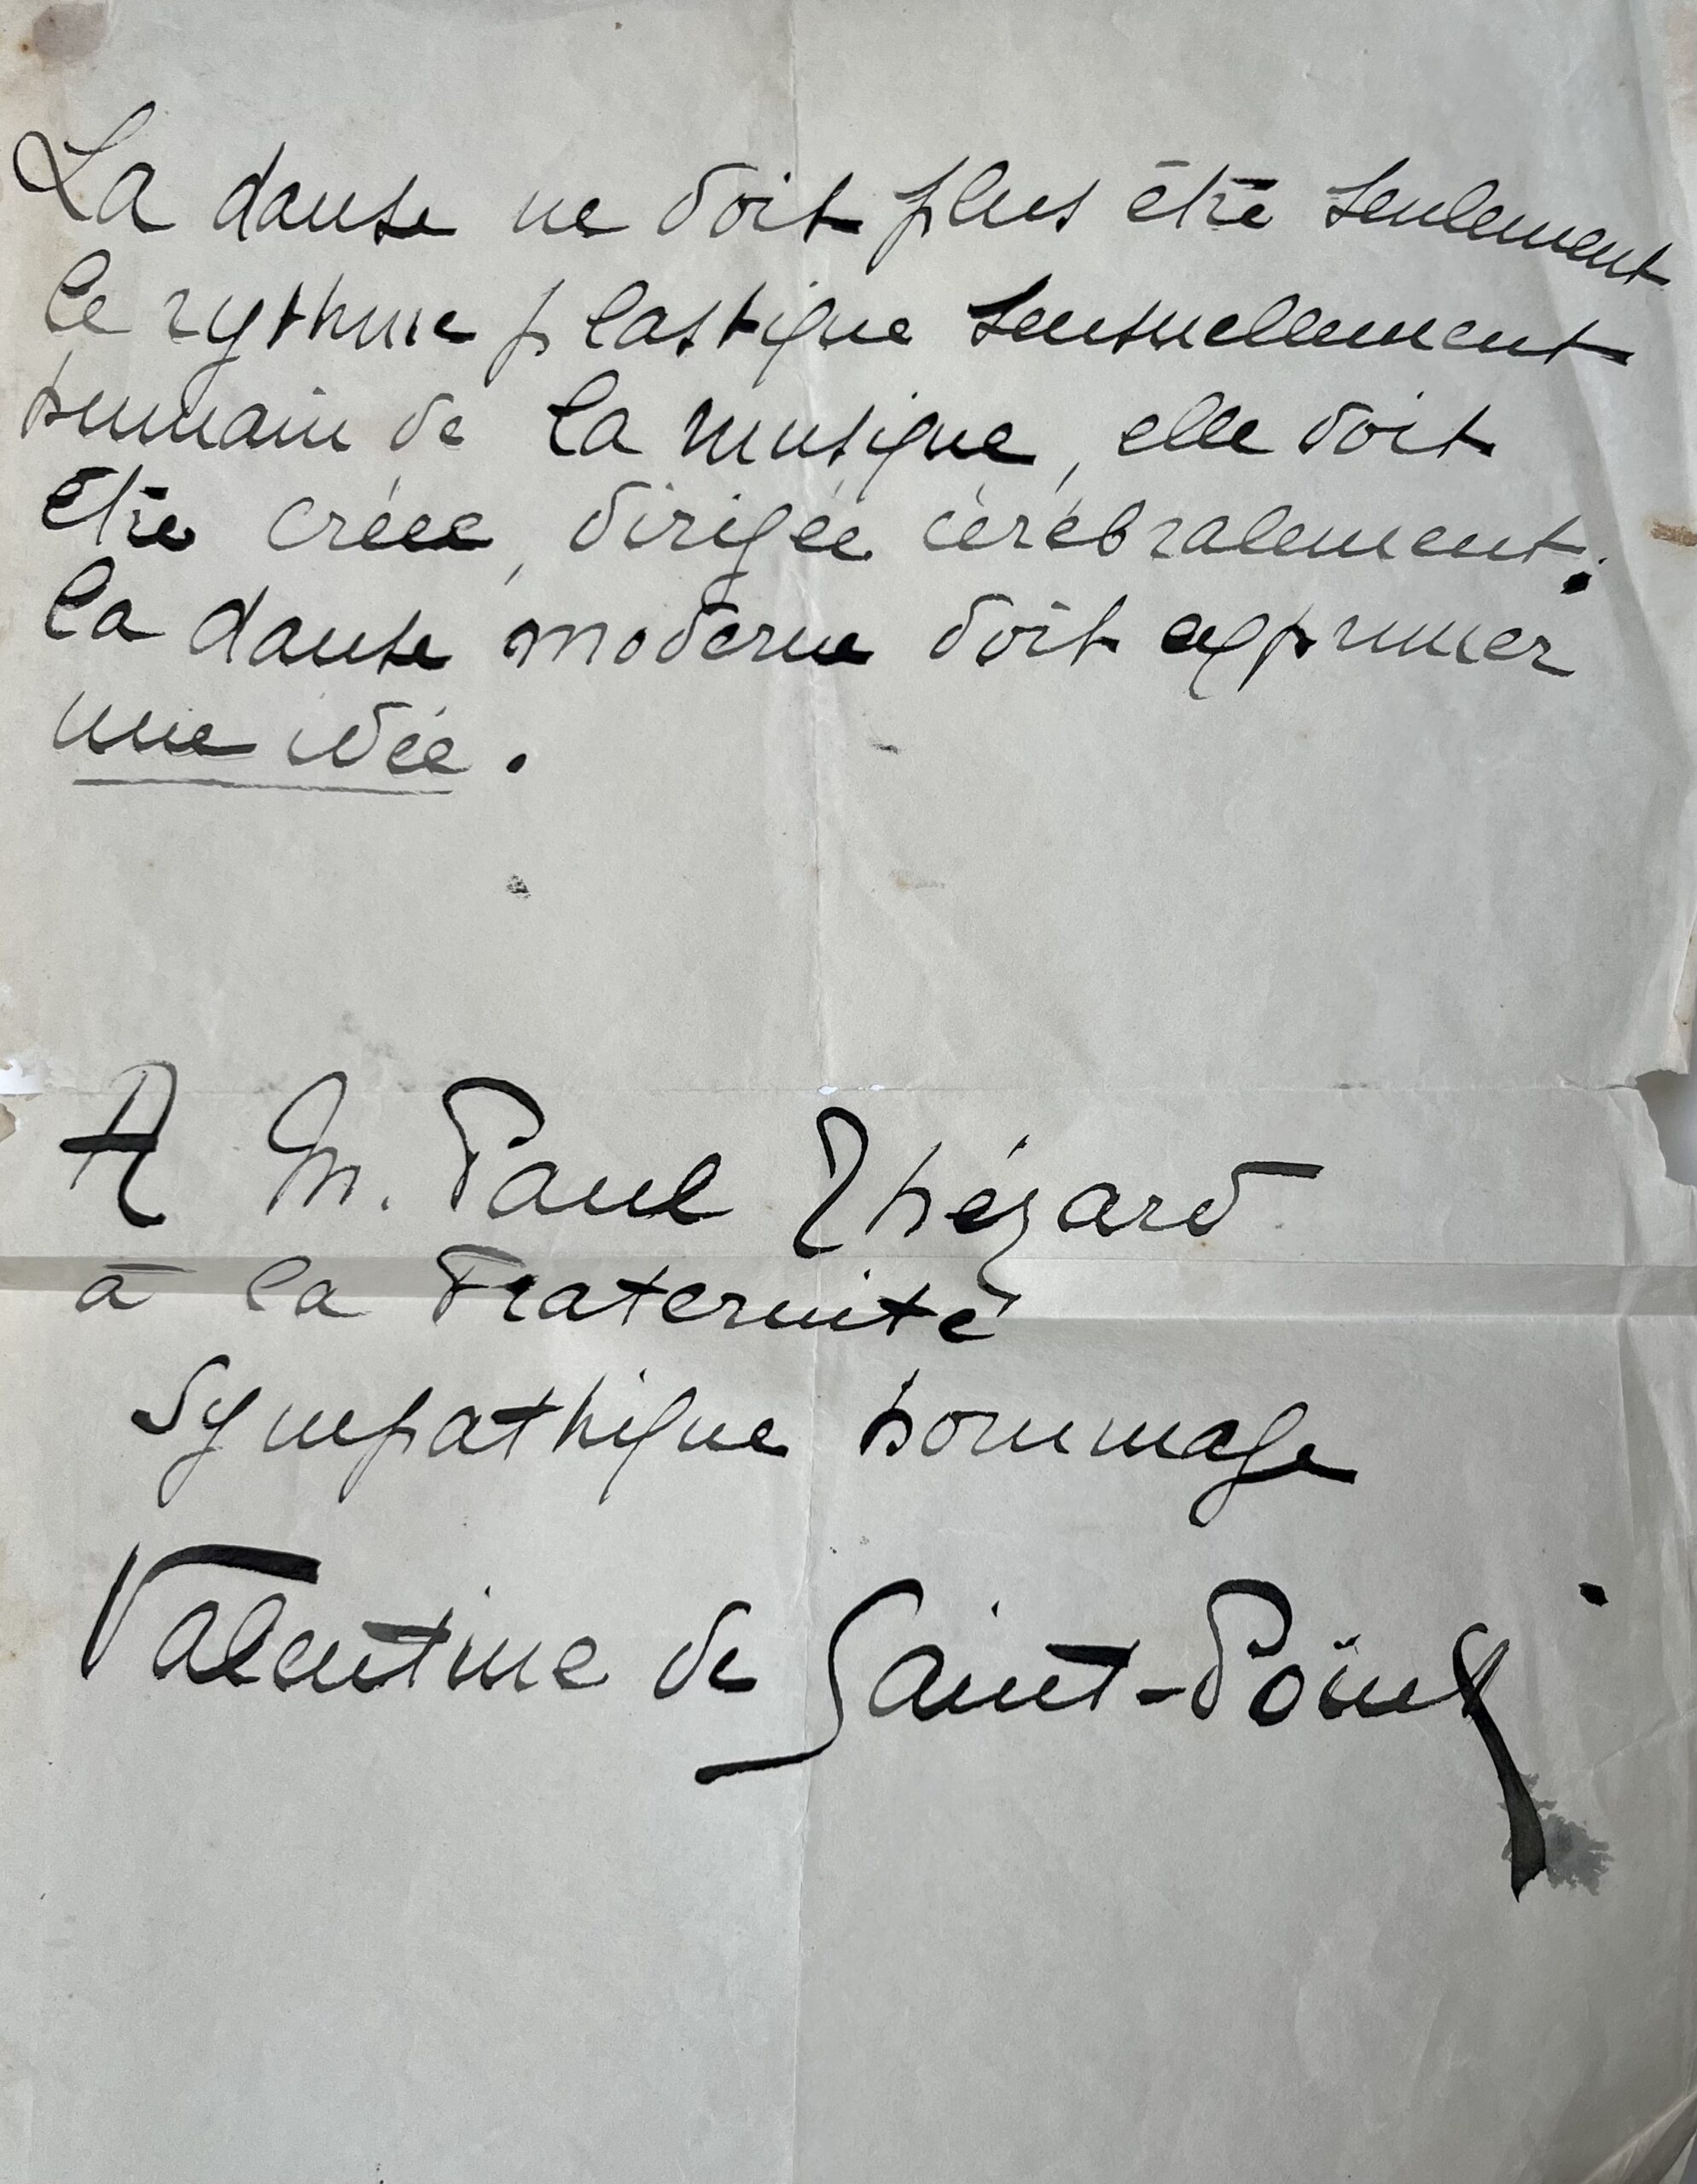 La danse ne doit plus être seulement
le rythme plastique sensuellement
humain de la musique, elle doit
être créée, dirigée cérébralement.
La danse moderne doit exprimer
une idée.
A M. Paul Thézard
à la Fraternité
Sympathique hommage
Valentine de Saint-Point